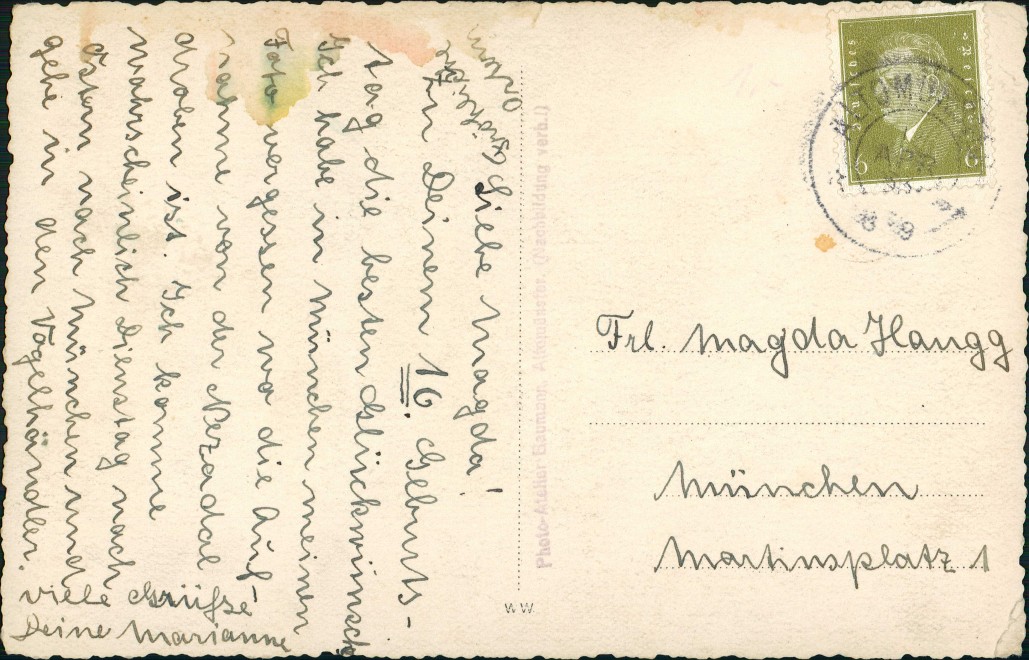 Liebe Magda!
Zu Deinem 16. Geburts-
tag die besten Glückwünsche
Ich habe in München meinen
Foto vergessen wo die Auf
nahme von der
droben ist. Ich komme
wahrscheinlich Dienstag nach
Ostern nach München und
gehe in den Vogelhändler.
viele Grüße!
Deine Marianne
Photo-Atelier Baumann, Altomünster. (Nachbildung verb.!)
W.W.
Deutsches Reich
6
APR
8-9
Frl. Magda Haugg
München
Martinsplatz 1